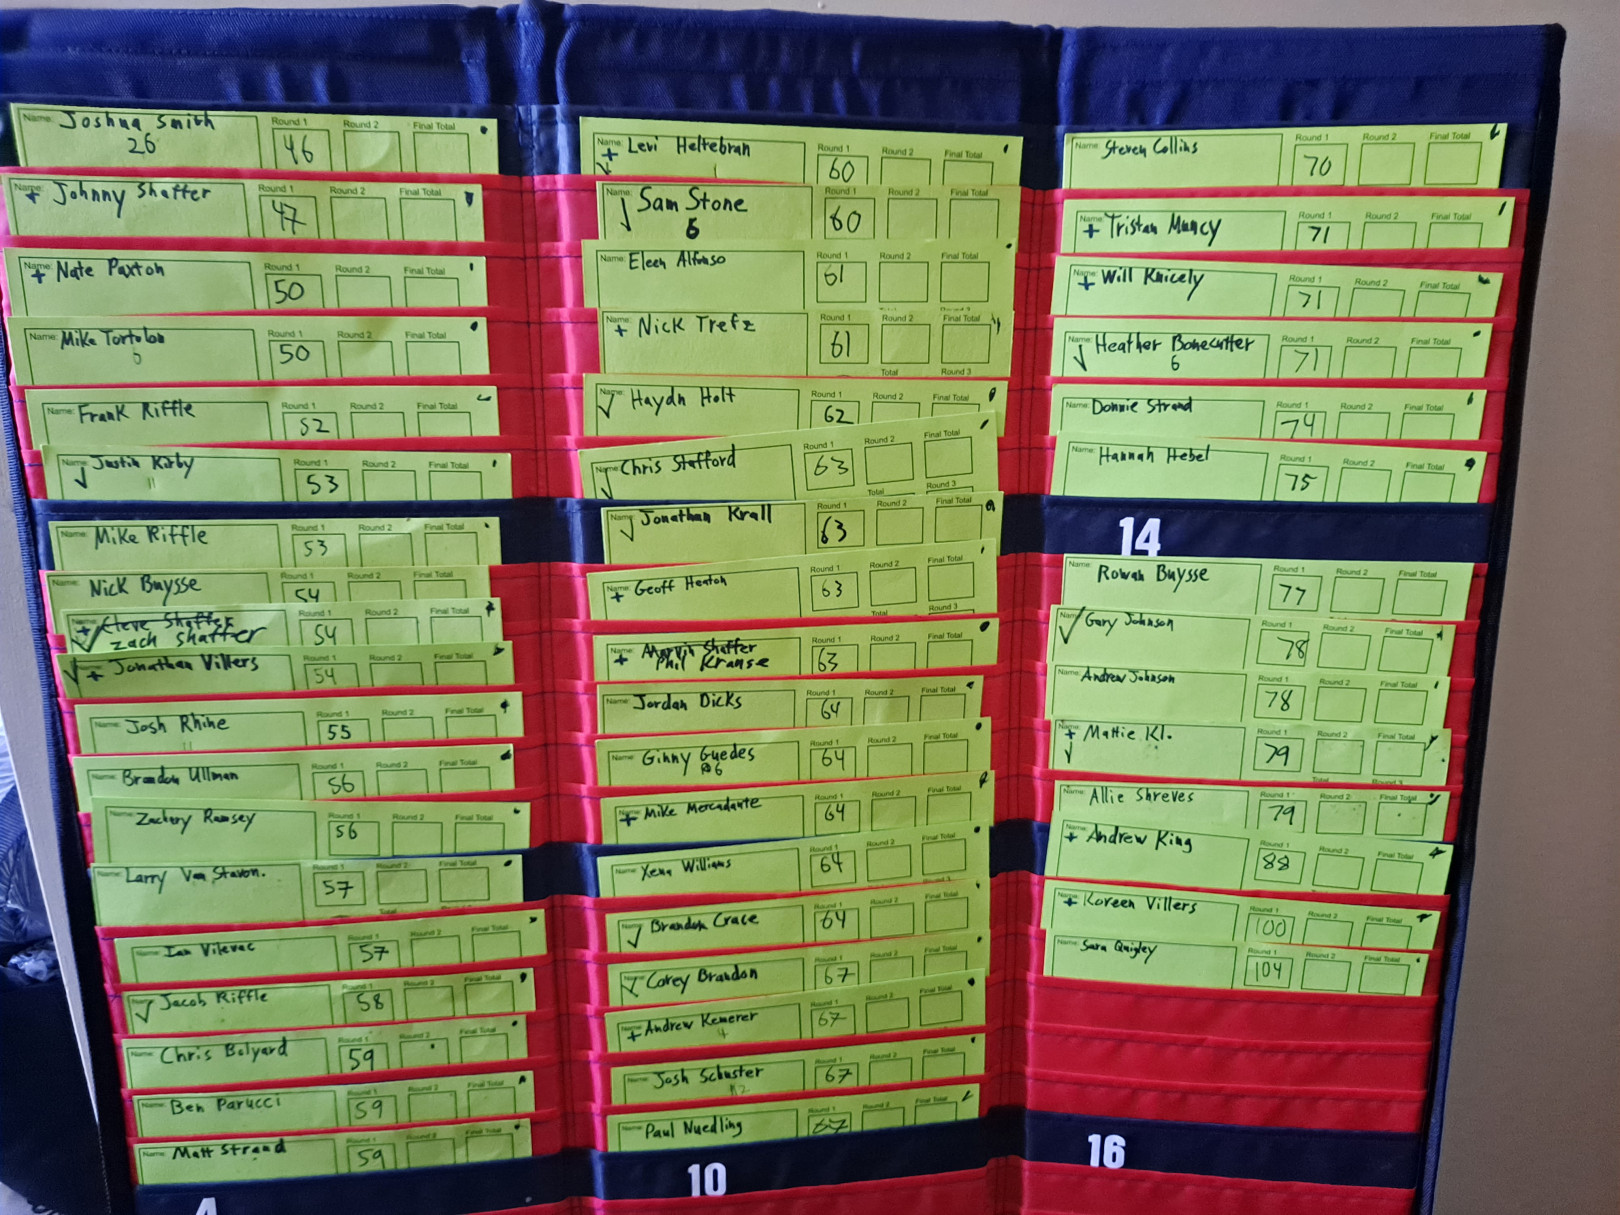 Name: Joshua Smith Round 1 Round 2 Final Total
26 46
Name: + Johnny Shaffer Round 1 Round 2 Final Total
47
Name: + Nate Paxton Round 1 Round 2 Final Total
50
Name: Mike Tortolon Round 1 Round 2 Final Total
6 50
Name: Frank Riffle Round 1 Round 2 Final Total
52
Name: Justin Kirby Round 1 Round 2 Final Total
11 53
Name: Mike Riffle Round 1 Round 2 Final Total
53
Name: Nick Buysse Round 1 Round 2 Final Total
54
Name: + Steve Shaffer Round 1 Round 2 Final Total
Zach Shaffer 54
Name: + Jonathan Villers Round 1 Round 2 Final Total
54
Name: Josh Rhine Round 1 Round 2 Final Total
11 55
Name: Brandon Ullman Round 1 Round 2 Final Total
56
Name: Zachery Ramsey Round 1 Round 2 Final Total
56
Name: Larry Van Stavon. Round 1 Round 2 Final Total
57
Total
Name: Ian Vilevac Round 1 Round 2 Final Total
57
Name: Jacob Riffle Round 1 Round 2 Final Total
58
Name: Chris Bolyard Round 1 Round 2 Final Total
59
Name: Ben Parucci Round 1 Round 2 Final Total
59
Name: Matt Strand Round 1 Round 2 Final Total
59
4
Name: + Levi Heltebran Round 1 Round 2 Final Total
60
Name: Sam Stone Round 1 Round 2 Final Total
6 60
Name: Eleen Alfonso Round 1 Round 2 Final Total
61
Name: + Nick Trefz Round 1 Round 2 Final Total
61
Total Round 3
Name: Haydn Holt Round 1 Round 2 Final Total
62
Name: Chris Stafford Round 1 Round 2 Final Total
63
Total Round 3
Name: Jonathan Krall Round 1 Round 2 Final Total
63
Name: + Geoff Heaton Round 1 Round 2 Final Total
63
Total Round 3
Name: + Marvin Shaffer Round 1 Round 2 Final Total
Phil Kranse 63
Name: Jordan Dicks Round 1 Round 2 Final Total
64
Name: Ginny Guedes Round 1 Round 2 Final Total
6 64
Name: + Mike Mercadante Round 1 Round 2 Final Total
64
Name: Xena Williams Round 1 Round 2 Final Total
64
Name: Brandon Crace Round 1 Round 2 Final Total
64
Name: Corey Brandon Round 1 Round 2 Final Total
67
Name: + Andrew Kemerer Round 1 Round 2 Final Total
4 67
Name: Josh Schuster Round 1 Round 2 Final Total
12 67
Name: Paul Nuedling Round 1 Round 2 Final Total
67
10
Name: Steven Collins Round 1 Round 2 Final Total
70
Name: + Tristan Muncy Round 1 Round 2 Final Total
71
Name: + Will Knicely Round 1 Round 2 Final Total
71
Name: Heather Bonecutter Round 1 Round 2 Final Total
6 71
Name: Donnie Strand Round 1 Round 2 Final Total
74
Name: Hannah Hebel Round 1 Round 2 Final Total
75
14
Name: Rowan Buysse Round 1 Round 2 Final Total
77
Name: Gary Johnson Round 1 Round 2 Final Total
78
Name: Andrew Johnson Round 1 Round 2 Final Total
78
Name: + Mattie Kl. Round 1 Round 2 Final Total
79
Total Round 3
Name: Allie Shreves Round 1 Round 2 Final Total
79
Name: + Andrew King Round 1 Round 2 Final Total
88
Name: + Koreen Villers Round 1 Round 2 Final Total
100
Name: Sara Quigley Round 1 Round 2 Final Total
104
16